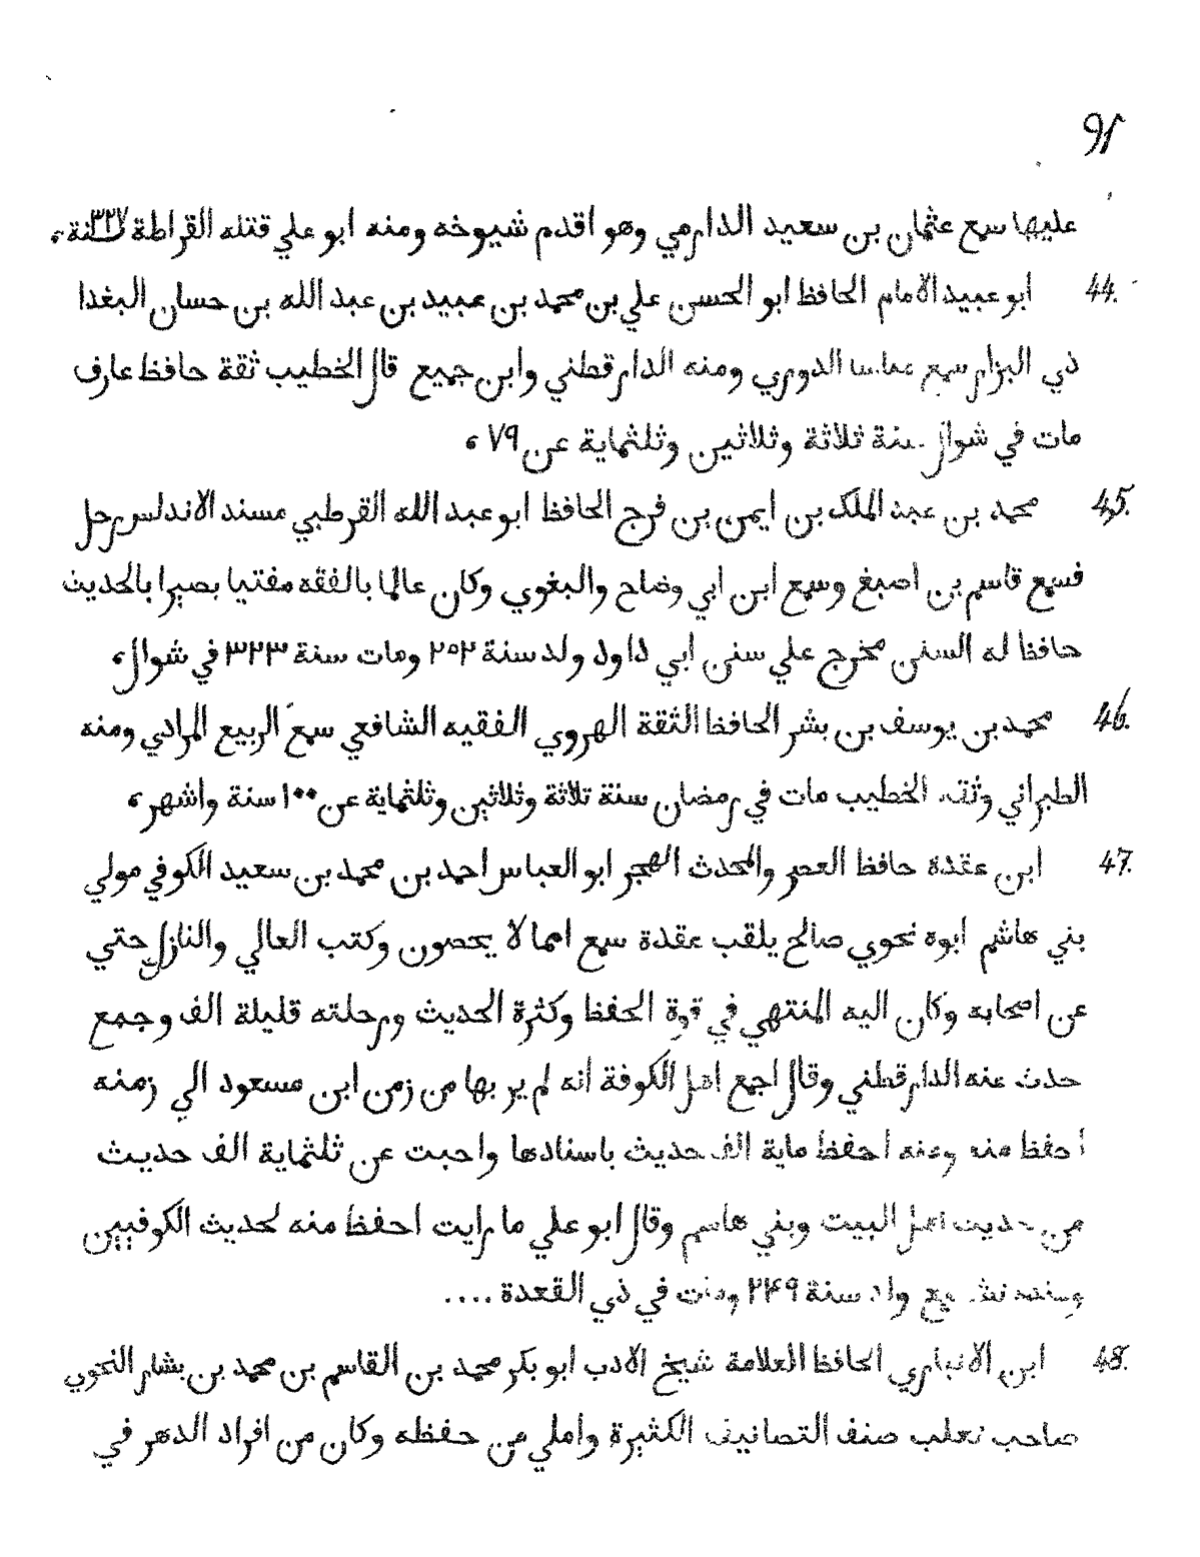 ٩٢
عليها سمع عثمان بن سعيد الدارمي وهو اقدم شيوخه ومنه ابو علي قتله القرامطة سنة ٣٢٧
44. ابو عبيد الامام الحافظ ابو الحسن علي بن محمد بن عبيد بن عبد الله بن حسان البغدا
ذي البزار سمع عباسا الدوري ومنه الدارقطني وابن جميع قال الخطيب ثقة حافظ عارف
مات في شوال سنة ثلاثة وثلاثين وثلثماية عن ٧٩
45. محمد بن عبد الملك بن ايمن بن فرج الحافظ ابو عبد الله القرطبي مسند الاندلس رحل
فسمع قاسم بن اصبغ وسمع ابن ابي وضاح والبغوي وكان عالما بالفقه مفتيا بصيرا بالحديث
حافظا له السنن مخرج علي سنن ابي داود ولد سنة ٢٥٢ ومات سنة ٣٢٣ في شوال
46. محمد بن يوسف بن بشر الحافظ الثقة الهروي الفقيه الشافعي سمع الربيع المرادي ومنه
الطبراني وثقه الخطيب مات في رمضان سنة تلاثة وثلاثين وثلثماية عن ١٠٠ سنة واشهر
47. ابن عقدة حافظ العصر والمحدث الهجر ابو العباس احمد بن محمد بن سعيد الكوفي مولي
بني هاشم ابوه نحوي صالح يلقب عقدة سمع امما لا يحصون وكتب العالي والنازل حتي
عن اصحابه وكان اليه المنتهي في قوة الحفظ وكثرة الحديث ورحلته قليلة الف وجمع
حدث عنه الدارقطني وقال اجمع اهل الكوفة انه لم ير بها من زمن ابن مسعود الي زمنه
احفظ منه وعنه احفظ ماية الف حديث باسنادها واجبت عن ثلثماية الف حديث
من حديث اهل البيت وبني هاشم وقال ابو علي ما رايت احفظ منه لحديث الكوفيين
ولد سنة ٢٤٩ ومات في ذي القعدة ....
48. ابن الانباري الحافظ العلامة شيخ الادب ابو بكر محمد بن القاسم بن محمد بن بشار النحوي
صاحب ثعلب صنف التصانيف الكثيرة واملي من حفظه وكان من افراد الدهر في